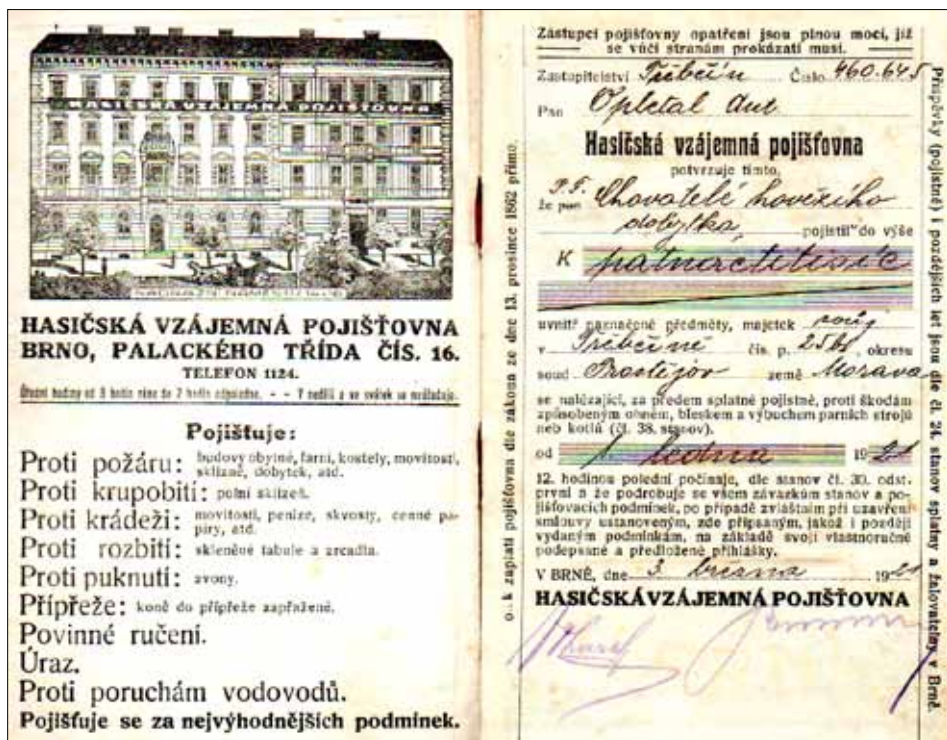 HASIČSKÁ VZÁJEMNÁ POJIŠŤOVNA
HASIČSKÁ VZÁJEMNÁ POJIŠŤOVNA
BRNO, PALACKÉHO TŘÍDA ČÍS. 16.
TELEFON 1124.
Úřední hodiny od 8 hodin ráno do 2 hodin odpoledne. - - V neděli a ve svátek se neúřaduje.
Pojišťuje:
Proti požáru: budovy obytné, farní, kostely, movitosti,
sklizně, dobytek, atd.
Proti krupobití: polní sklizeň.
Proti krádeži: movitosti, peníze, skvosty, cenné pa-
píry, atd.
Proti rozbití: skleněné tabule a zrcadla.
Proti puknutí: zvony.
Přípřeže: koně do přípřeže zapřažené.
Povinné ručení.
Úraz.
Proti poruchám vodovodů.
Pojišťuje se za nejvýhodnějších podmínek.
Zástupci pojišťovny opatřeni jsou plnou mocí, jíž
se vůči stranám prokázati musí.
Zastupitelství Třebčín Číslo 460.645
Pan Opletal Ant
Hasičská vzájemná pojišťovna
potvrzuje tímto,
P.T.
že pan Chovatelé hovězího
dobytka, pojistil do výše
K patnácttisíc
uvnitř naznačené předměty, majetek svůj
v Třebčíně čís. p. okresu
soud Prostějov země Morava
se nalézající, za předem splatné pojistné, proti škodám
způsobeným ohněm, bleskem a výbuchem parních strojů
neb kotlů (čl. 38. stanov).
od 1 ledna 1921
12. hodinou polední počínaje, dle stanov čl. 30. odst.
první a že podrobuje se všem závazkům stanov a po-
jišťovacích podmínek, po případě zvláštním při uzavření
smlouvy ustanoveným, zde připsaným, jakož i později
vydaným podmínkám, na základě svojí vlastnoručně
podepsané a předložené přihlášky.
V BRNĚ, dne 3. března 1921
HASIČSKÁ VZÁJEMNÁ POJIŠŤOVNA
k zaplatí pojišťovna dle zákona ze dne 13. prosince 1862 přímo.
Příspěvky (pojistné) i pozdějších let jsou dle čl. 24. stanov splatny a žalovatelny v Brně.